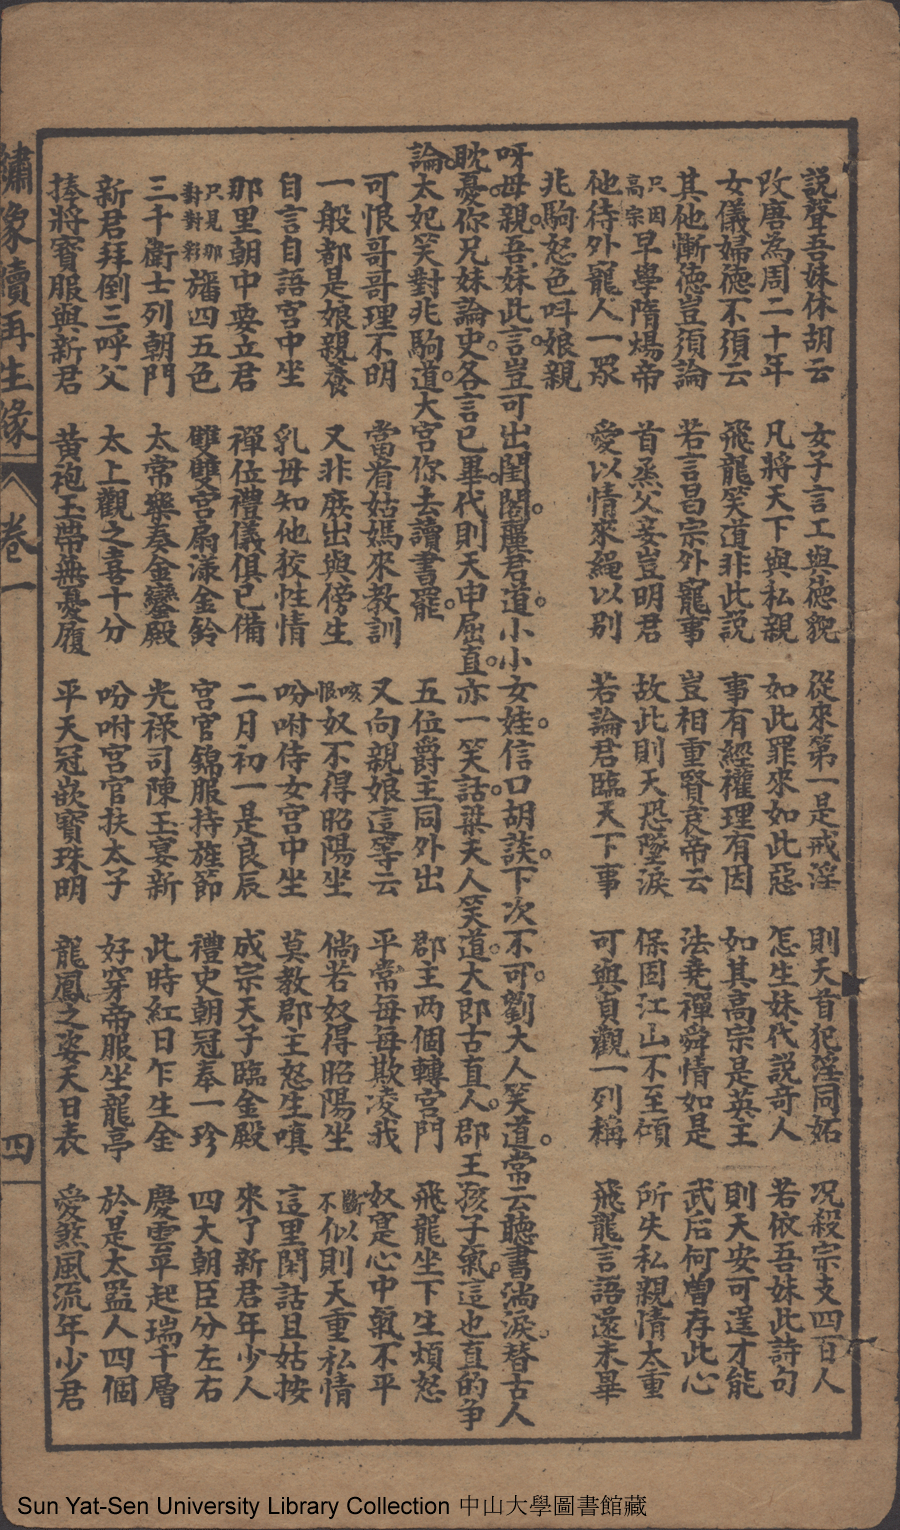 説聲吾妹休胡云 女子言工與德貌 從來第一是戒淫 則天首犯淫同妬 况殺宗支四百人
改唐為周二十年 凡將天下與私親 如此罪來如此惡 怎生妹代説奇人 若依吾妹此詩句
女儀婦德不須云 飛龍笑道非此説 事有經權理有因 如其高宗是英主 則天安可逞才能
其他慚德豈須論 若言昌宗外寵事 豈相重賢哀帝云 法堯禪舜情如是 武后何曾存此心
只因高宗早學隋煬帝 首烝父妾豈明君 故此則天恐墜淚 保固江山不至傾 所失私親情太重
他待外寵人一眾 愛以情來繩以别 若論君臨天下事 可與貞觀一列稱 飛龍言語還未畢
兆駒怒色呌娘親
呀母親。吾妹此言。豈可出閨閣。麗君道。小小女娃。信口胡談。下次不可。劉大人笑道。常云聽書淌淚。替古人
耽憂。你兄妹論史。各言已畢。代則天申屈直。亦一笑話。梁夫人笑道。大郎古直人。郡王孩子氣。這也直的争
論。太妃笑對兆駒道。大宮你去讀書罷。 五位爵主同外出 郡主两個轉宮門 飛龍坐下生煩怒
可恨哥哥理不明 當着姑媽來教訓 又向親娘這等云 平常每每欺凌我 奴寔心中氣不平
一般都是娘親養 又非庶出與傍生 咳恨奴不得昭陽坐 倘若奴得昭陽坐 斷不似則天重私情
自言自語宮中坐 乳母知他狡性情 吩咐侍女宮中坐 莫教郡主怒生嗔 這里閑話且姑按
那里朝中要立君 禪位禮儀俱已備 二月初一是良辰 成宗天子臨金殿 來了新君年少人
只見那對對彩旛四五色 雙雙宮扇漾金鈴 宮官錦服持旌節 禮史朝冠奉一珍 四大朝臣分左右
三千衛士列朝門 太常樂奏金鑾殿 光禄司陳玉宴新 此時紅日乍生金 慶雲平起瑞千層
新君拜倒三呼父 太上觀之喜十分 吩咐宮官扶太子 好穿帝服坐龍亭 於是太監人四個
捧將寶服與新君 黄袍玉帶無憂履 平天冠嵌寶珠明 龍鳳之姿天日表 愛煞風流年少君
繡像續再生緣 卷一 四
Sun Yat-Sen University Library Collection 中山大學圖書館藏